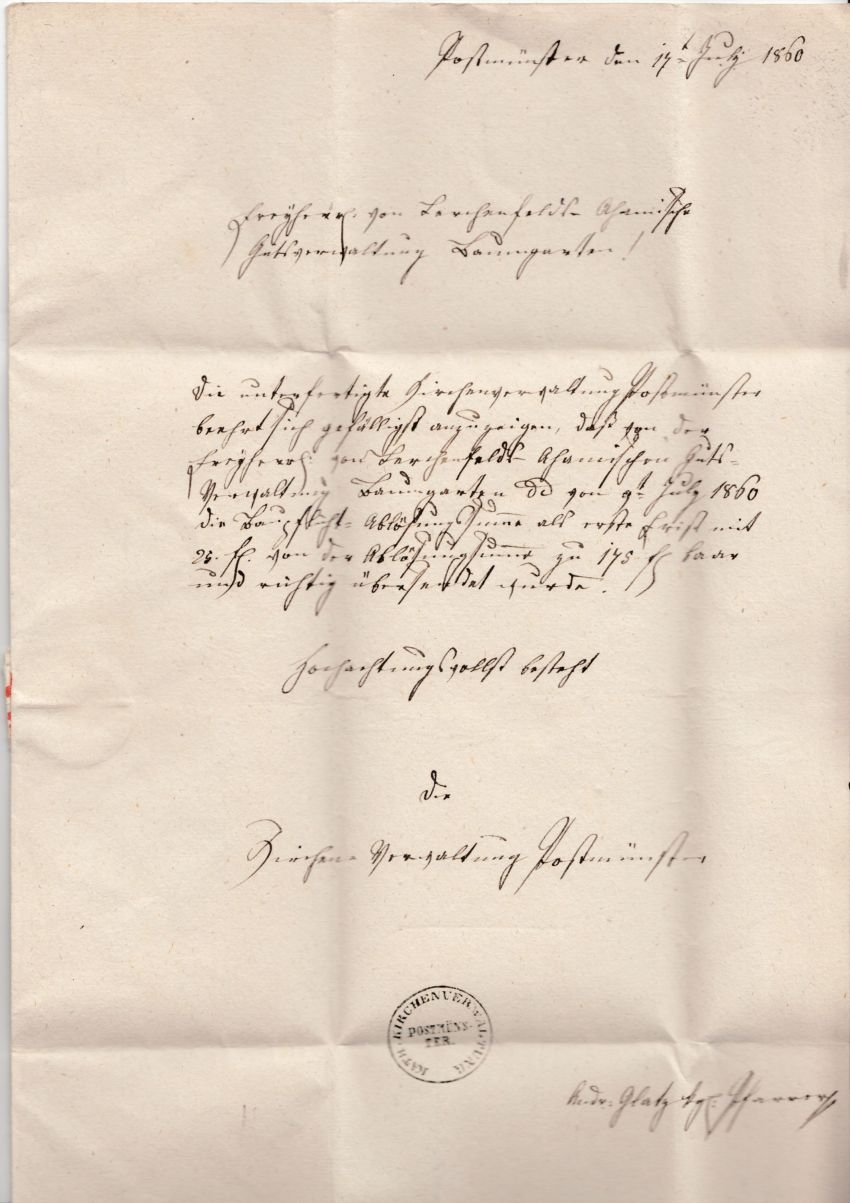 Postmünster den 17t July 1860
Freyherrl: von Lerchenfeld- Ahamische
Gutsverwaltung Baumgarten!
Die unterfertigte Kirchenverwaltung Postmünster
beehrt sich gefälligst anzuzeigen, daß von der
Freyherrl: von Lerchenfeld- Ahamischen Guts-
Verwaltung Baumgarten dd von 9t July 1860
die Baupflicht- Ablösungssumme als erste Frist mit
25. fl. von der Ablösungssumme zu 175 fl baar
und richtig übersendet wurde.
Hochachtungsvollst besteht
Die
Kirchen- Verwaltung Postmünster
KATH. KIRCHENVERWALTUNG
POSTMÜNS-
TER.
Andr: Glatz kgl: Pfarrer